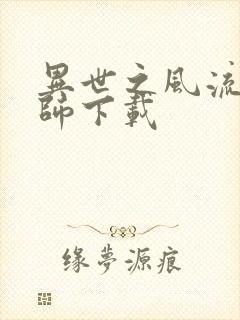 異世之風流
師下載
缘夢源痕